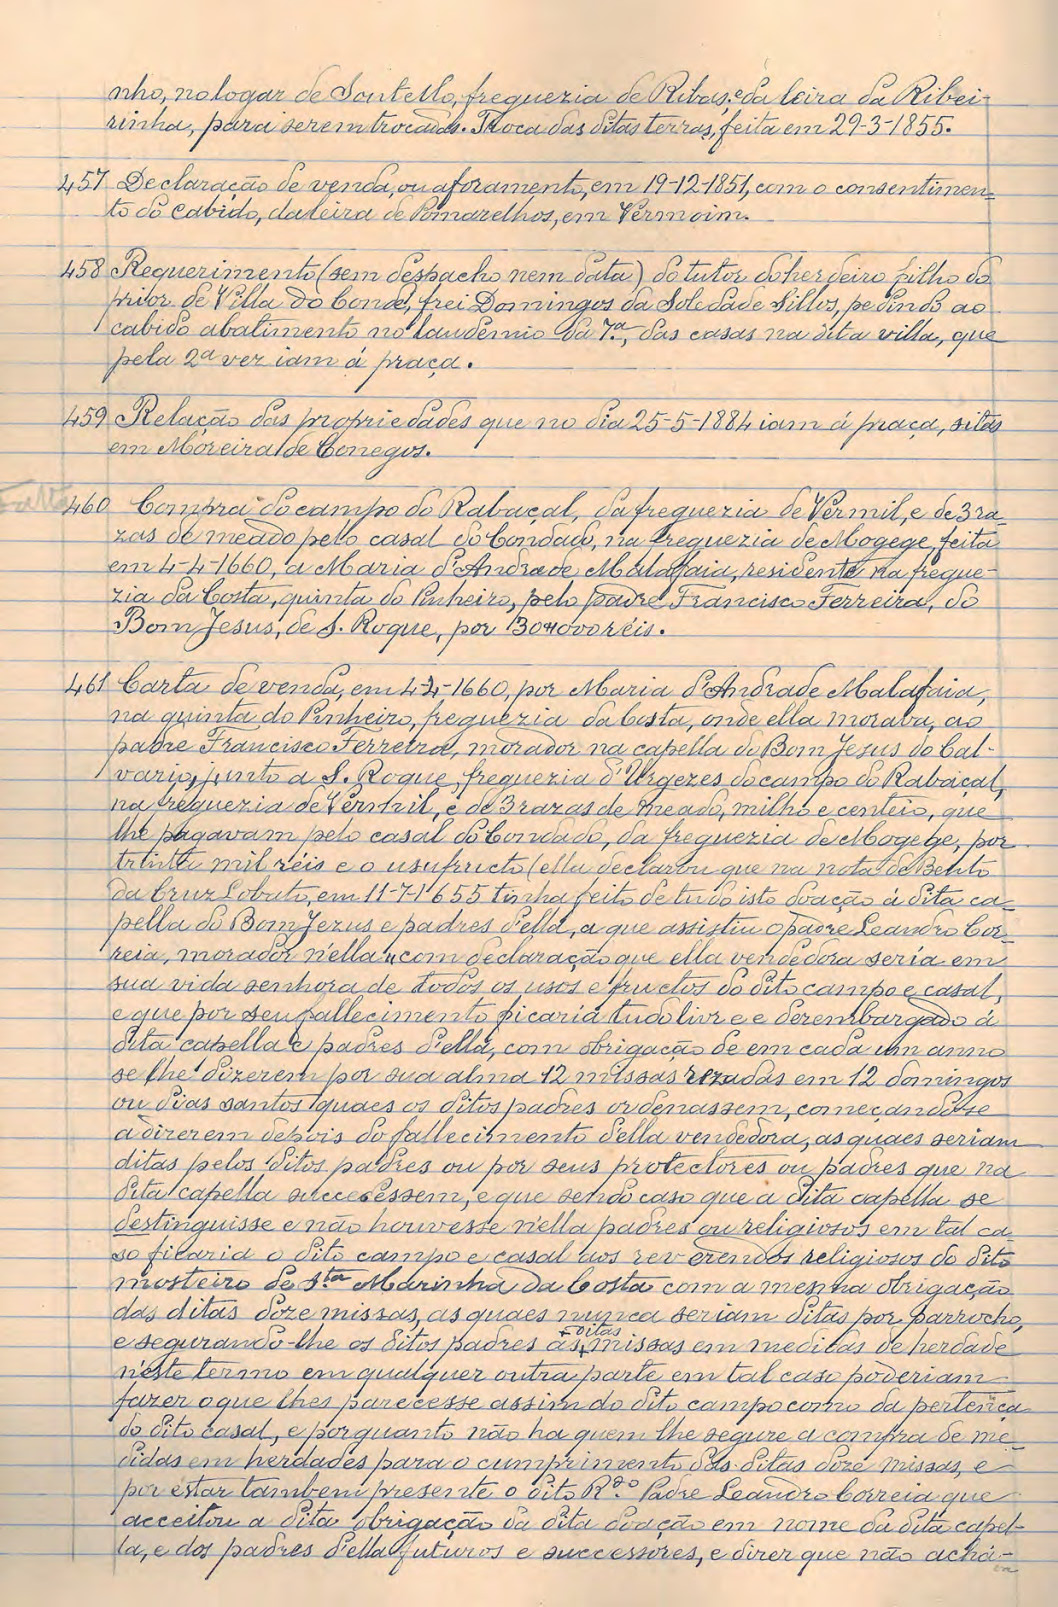 nho, no logar de Soutello, freguezia de Ribas, e da leira da Ribei-
rinha, para serem trocadas. Troca das ditas terras, feita em 29-3-1855.
457 Declaração de venda, ou aforamento, em 19-12-1851, com o consentimen-
to do cabido, da leira de Pomarelhos, em Vermoim.
458 Requerimento (sem despacho nem data) do tutor do herdeiro filho do
prior de Villa do Conde, frei Domingos da Soledade Sillos, pedindo ao
cabido abatimento no laudemio da 7.ª, das casas na dita villa, que
pela 2ª vez iam á praça.
459 Relação das propriedades que no dia 25-5-1884 iam á praça, sitas
em Moreira de Conegos.
Falta 460 Compra do campo do Rabaçal, da freguezia de Vermil, e de 3 ra-
zas de meado pelo casal do Condado, na freguezia de Mogege, feita
em 4-4-1660, a Maria d'Andrade Malafaia, residente na fregue-
zia da Costa, quinta do Pinheiro, pelo padre Francisco Ferreira, do
Bom Jesus, de S. Roque, por 30#000 réis.
461 Carta de venda, em 4-4-1660, por Maria d'Andrade Malafaia,
na quinta do Pinheiro, freguezia da Costa, onde ella morava, ao
padre Francisco Ferreira, morador na capella do Bom Jezus do Cal-
vario, junto a S. Roque, freguezia d'Urgezes do campo do Rabaçal,
na freguezia de Vermil, e de 3 razas de meado, milho e centeio, que
lhe pagavam pelo casal do Condado, da freguezia de Mogege, por
trinta mil réis e o usufructo (ella declarou que na nota de Bento
da Cruz Lobato, em 11-7-1655 tinha feito de tudo isto doação á dita ca-
pella do Bom Jezus e padres d'ella, a que assistiu o padre Leandro Cor-
reia, morador n'ella "com declaração que ella vendedora seria em
sua vida senhora de todos os usos e fructos do dito campo e casal,
e que por seu fallecimento ficaria tudo livre e e dezembargado á
dita capella e padres d'ella, com obrigação de em cada um anno
se lhe dizerem por sua alma 12 missas rezadas em 12 domingos
ou dias santos quaes os ditos padres ordenassem, começando-se
a dizerem depois do fallecimento d'ella vendedora, as quaes seriam
ditas pelos ditos padres ou por seus protectores ou padres que na
dita capella succedessem, e que sendo caso que a dita capella se
destinguisse e não houvesse n'ella padres ou religiosos em tal ca-
so ficaria o dito campo e casal aos reverendos religiosos do dito
mosteiro de S.ta Marinha da Costa com a mesma obrigação
das ditas doze missas, as quaes nunca seriam ditas por parrocho,
e segurando-lhe os ditos padres as + ditas missas em medidas de herdade
n'este termo em qualquer outra parte em tal caso poderiam
fazer o que lhes parecesse assim do dito campo como da pertença
do dito casal, e porquanto não ha quem lhe segure a compra de me-
didas em herdades para o cumprimento das ditas doze missas, e
por estar tambem presente o dito R.do Padre Leandro Correia que
acceitou a dita obrigação da dita doação em nome da dita capel-
la, e dos padres d'ella futuros e successores, e dizer que não achá-